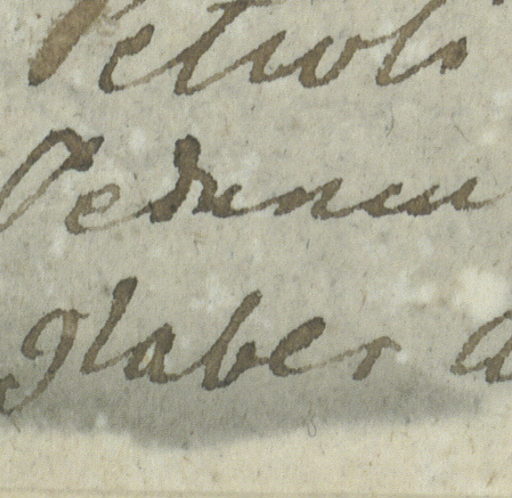 Petioli
Peduncu
glaber a